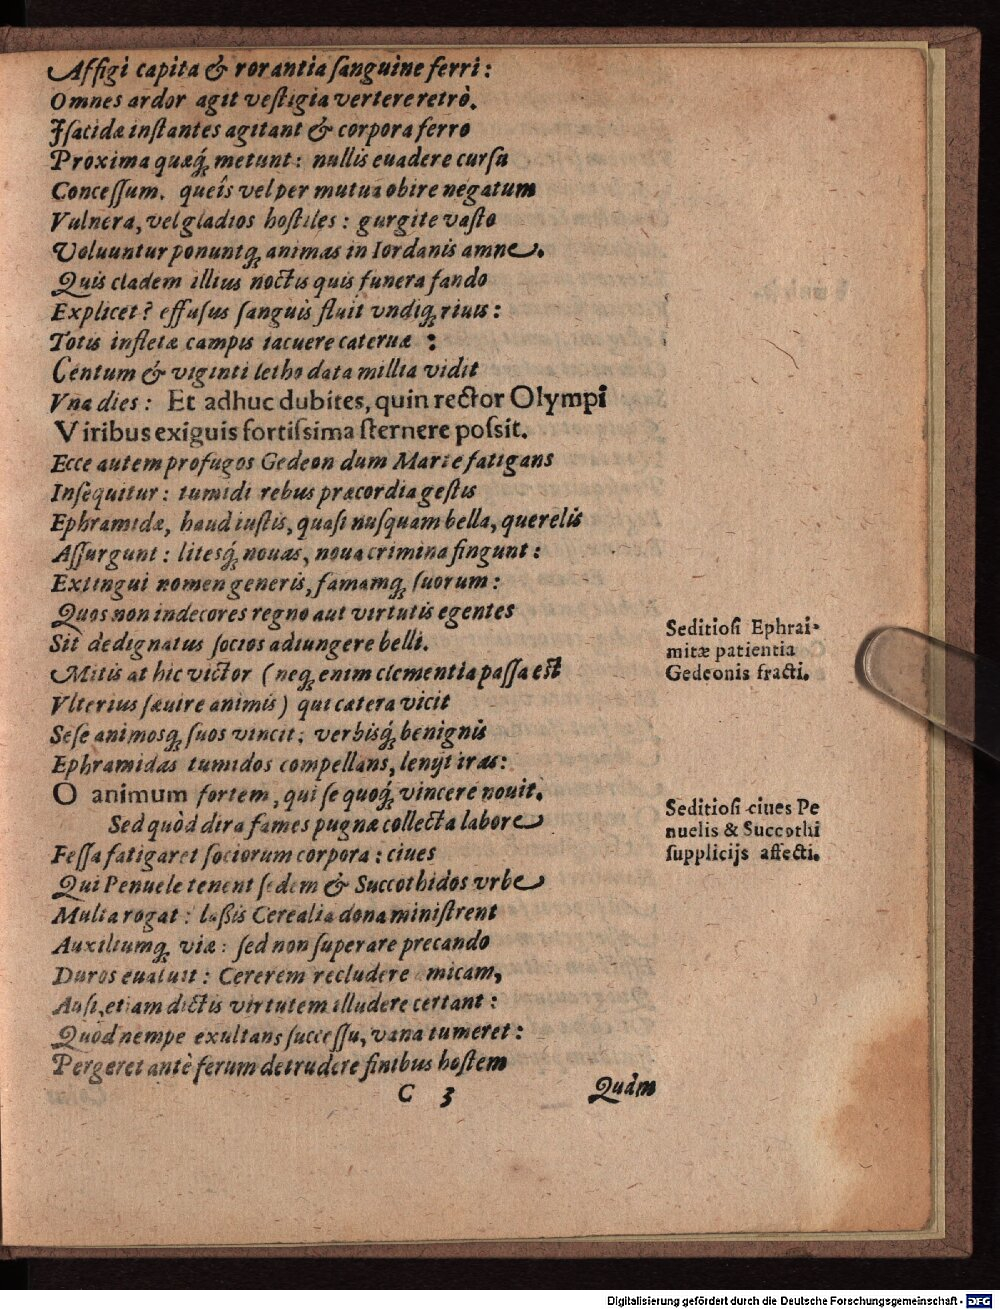 Affigi capita & rorantia ſanguine ferri:
Omnes ardor agit veſtigia vertere retrò.
Iſacidæ inſtantes agitant & corpora ferro
Proxima quæq́; metunt: nullis euadere curſu
Conceſſum. queîs vel per mutua obire negatum
Vulnera, vel gladios hoſtiles: gurgite vaſto
Voluuntur ponuntq; animas in Iordanis amne.
Quis cladem illius noctis quis funera fando
Explicet? effuſus ſanguis fluit vndiq; riuis:
Totis infletæ campis iacuere cateruæ:
Centum & viginti letho data millia vidit
Vna dies: Et adhuc dubites, quin rector Olympi
Viribus exiguis fortiſsima ſternere poſsit.
Ecce autem profugos Gedeon dum Marte fatigans
Inſequitur: tumidi rebus præcordia geſtis
Ephramidæ, haud iuſtis, quaſi nuſquam bella, querelis
Aſſurgunt: litesq́; nouas, noua crimina fingunt:
Extingui nomen generis, famamq; ſuorum:
Quos non indecores regno aut virtutis egentes
Sit dedignatus ſocios adiungere belli.
Mitis at hic victor (neq; enim clementia paſſa eſt
Vlterius ſæuire animis) qui cætera vicit
Seſe animosq; ſuos vincit: verbisq́; benignis
Ephramidas tumidos compellans, lenijt iras:
O animum fortem, qui ſe quoq́; vincere nouit.
Sed quòd dira fames pugnæ collecta labore
Feſſa fatigaret ſociorum corpora: ciues
Qui Penuele tenent ſedem & Succothidos vrbe
Multa rogat: laßis Cerealia dona miniſtrent
Auxiliumq; viæ: ſed non ſuperare precando
Duros eualuit: Cererem recludere amicam,
Auſi, etiam dictis virtutem illudere certant:
Quòd nempe exultans ſucceſſu, vana tumeret:
Pergeret antè ferum detrudere finibus hoſtem
C 3
Quàm
Seditioſi Ephrai-
mitæ patientia
Gedeonis fracti.
Seditioſi ciues Pe
nuelis & Succothi
ſupplicijs affecti.
Digitalisierung gefördert durch die Deutsche Forschungsgemeinschaft - DFG